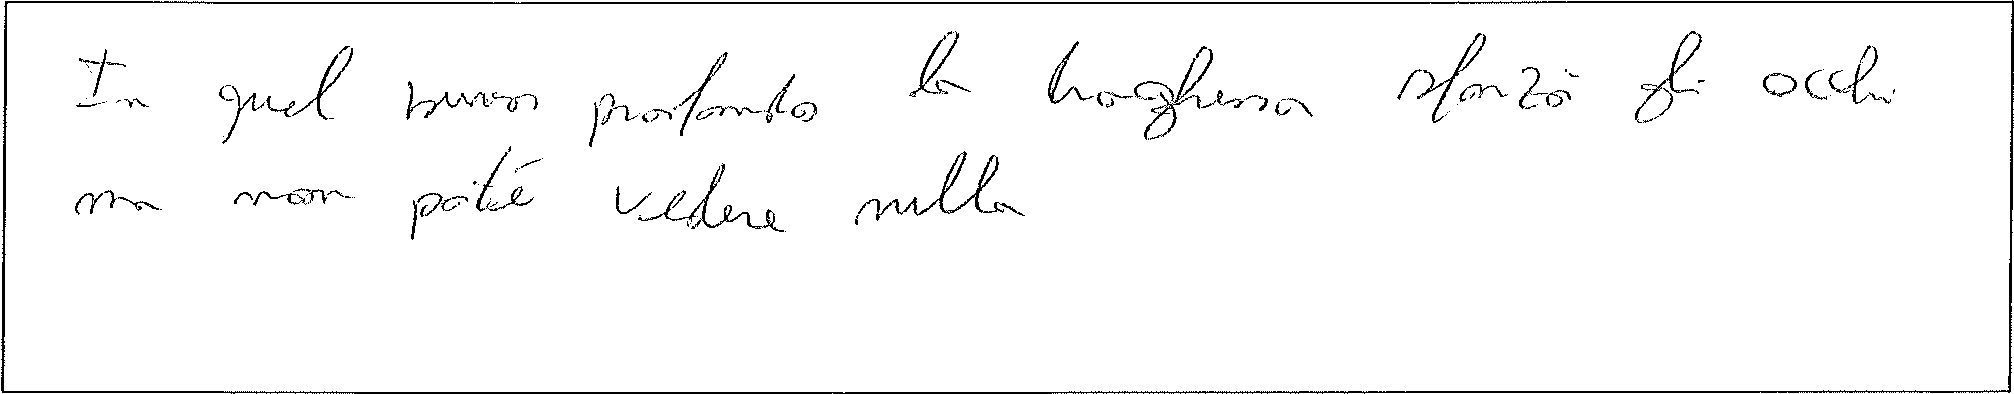 In quel profondo la sforzò gli occhi
ma non poté vedere nulla